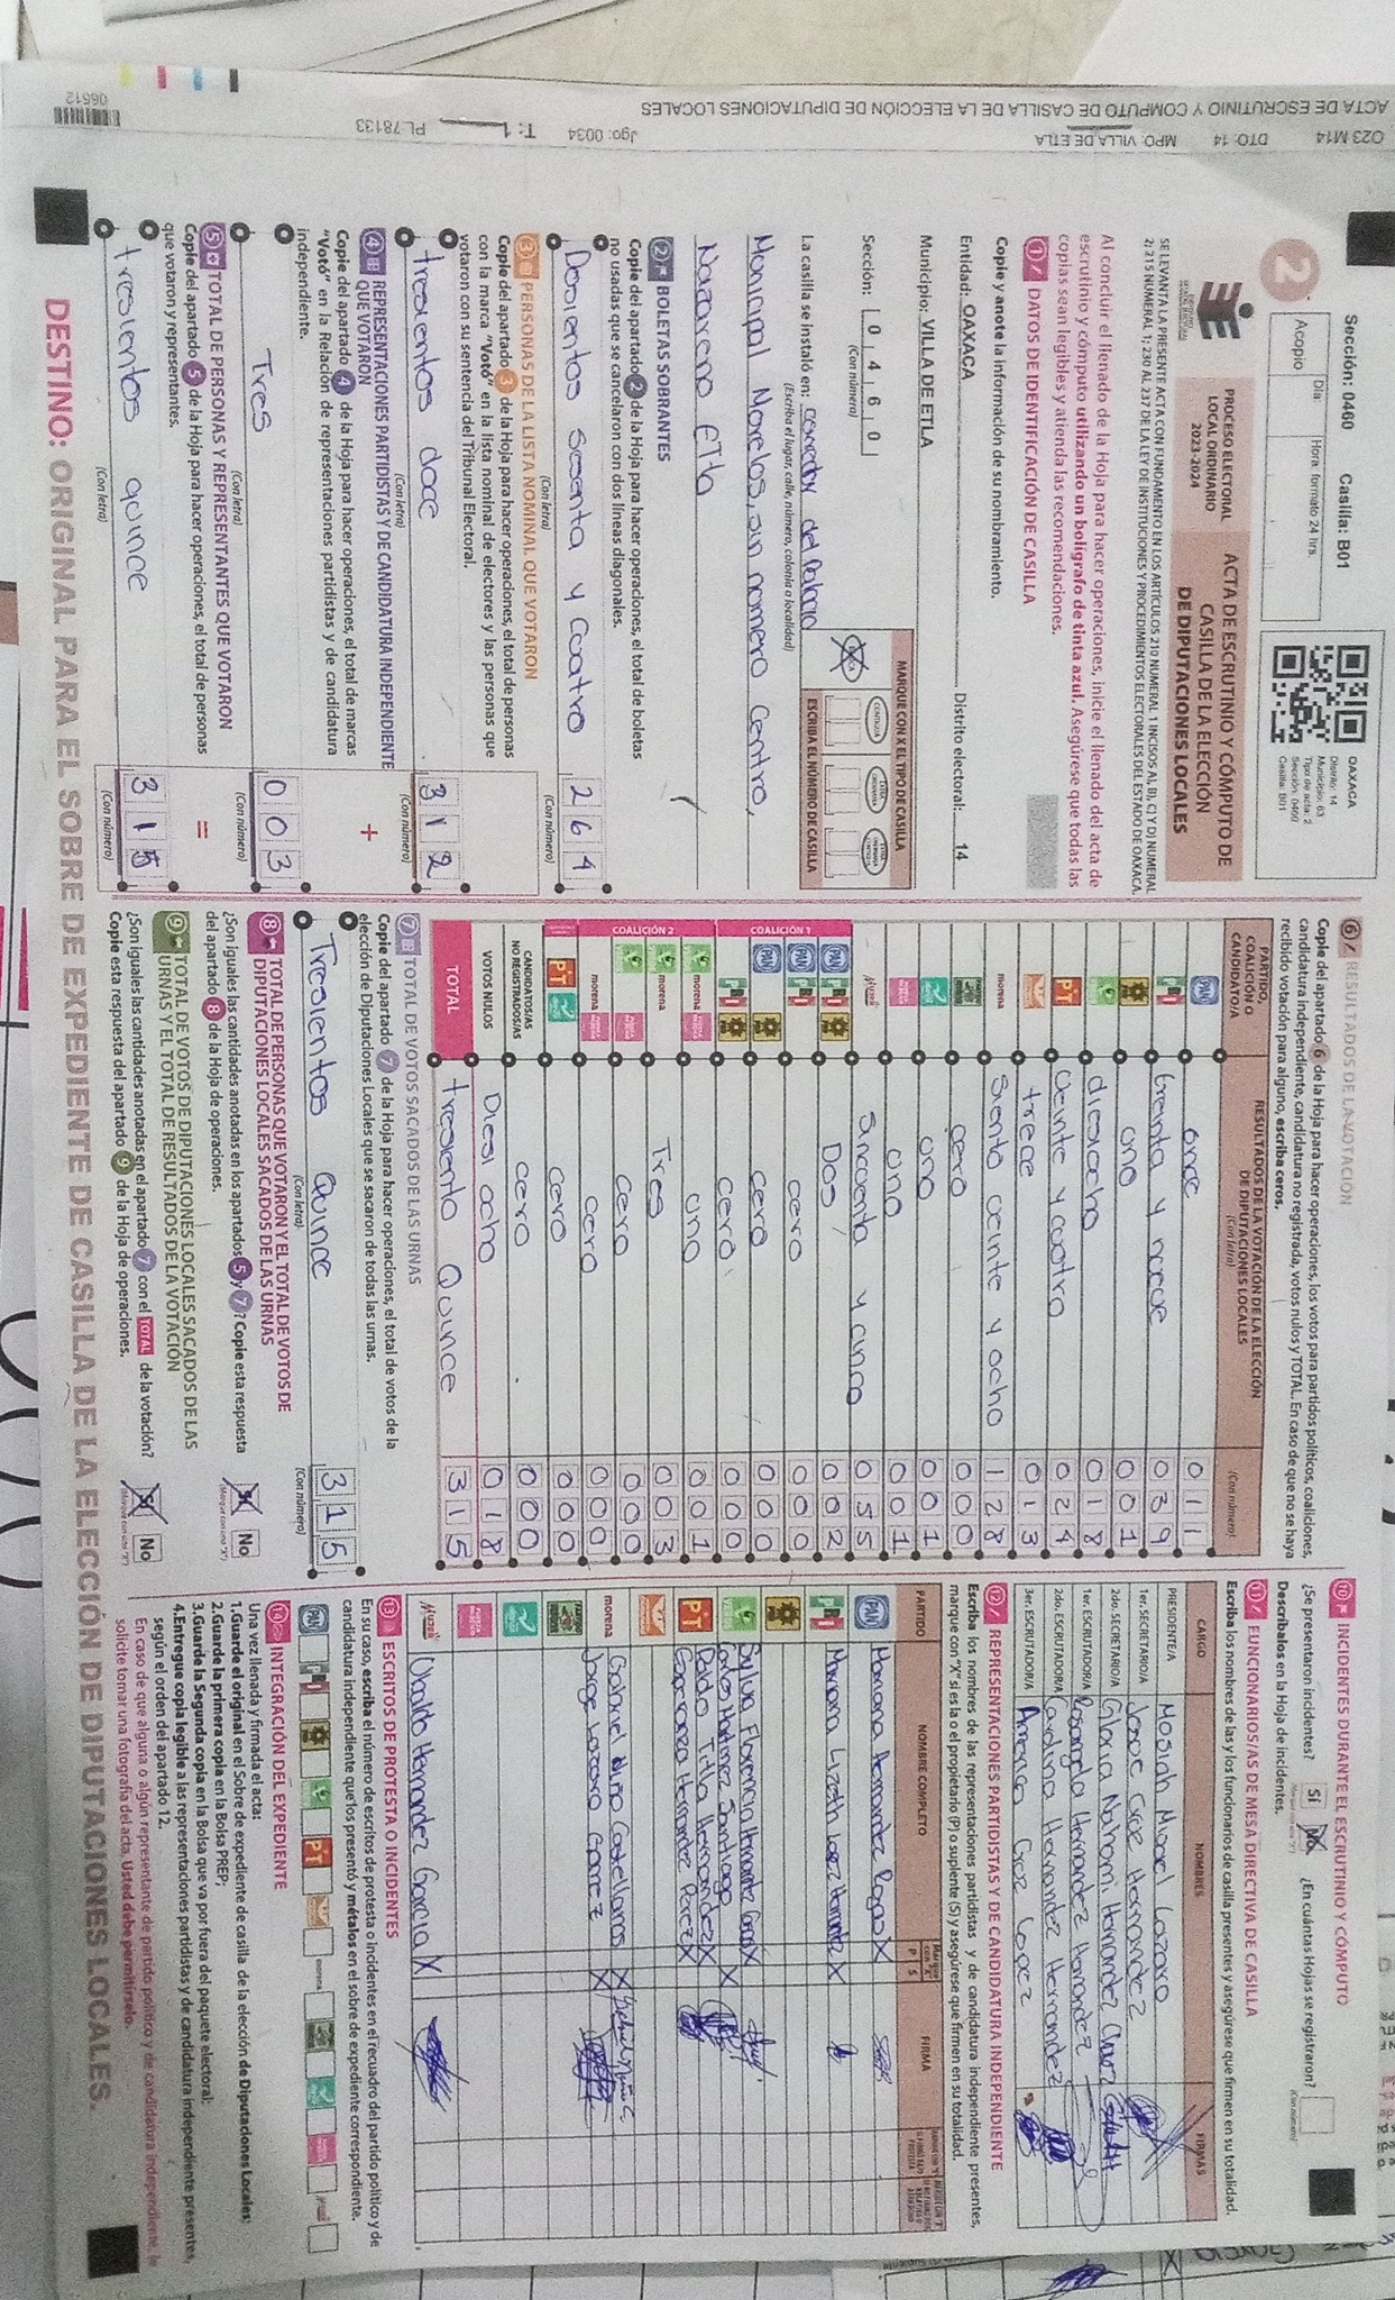 O23 M14 DTO: 14 MPO: VILLA DE ETLA Jgo: 0034 T: 1 PL 78133
ACTA DE ESCRUTINIO Y CÓMPUTO DE CASILLA DE LA ELECCIÓN DE DIPUTACIONES LOCALES
06512
Sección: 0460 Casilla: B01
2
Día: Hora: formato 24 hrs.
Acopio
OAXACA
Distrito: 14
Municipio: 63
Tipo de acta: 2
Sección: 0460
Casilla: B01
PROCESO ELECTORAL
LOCAL ORDINARIO
2023-2024
ACTA DE ESCRUTINIO Y CÓMPUTO DE
CASILLA DE LA ELECCIÓN
DE DIPUTACIONES LOCALES
SE LEVANTA LA PRESENTE ACTA CON FUNDAMENTO EN LOS ARTÍCULOS 210 NUMERAL 1 INCISOS A), B), C) Y D) NUMERAL
2; 215 NUMERAL 1; 230 AL 237 DE LA LEY DE INSTITUCIONES Y PROCEDIMIENTOS ELECTORALES DEL ESTADO DE OAXACA.
Al concluir el llenado de la Hoja para hacer operaciones, inicie el llenado del acta de
escrutinio y cómputo utilizando un bolígrafo de tinta azul. Asegúrese que todas las
copias sean legibles y atienda las recomendaciones.
1 DATOS DE IDENTIFICACIÓN DE CASILLA
Copie y anote la información de su nombramiento.
Entidad: OAXACA Distrito electoral: 14
Municipio: VILLA DE ETLA
Sección: 0 4 6 0
(Con número)
MARQUE CON X EL TIPO DE CASILLA
ESCRIBA EL NÚMERO DE CASILLA
La casilla se instaló en: corredor del Palacio
(Escriba el lugar, calle, número, colonia o localidad)
Monicipal Morelos, sin nomero Centro,
Nazareno Etla
2 BOLETAS SOBRANTES
Copie del apartado 2 de la Hoja para hacer operaciones, el total de boletas
no usadas que se cancelaron con dos líneas diagonales.
Docientos sesenta y Cuatro 2 6 4
(Con letra) (Con número)
3 PERSONAS DE LA LISTA NOMINAL QUE VOTARON
Copie del apartado 3 de la Hoja para hacer operaciones, el total de personas
con la marca "Votó" en la lista nominal de electores y las personas que
votaron con su sentencia del Tribunal Electoral.
tresientos doce 3 1 2
(Con letra) (Con número)
4 REPRESENTACIONES PARTIDISTAS Y DE CANDIDATURA INDEPENDIENTE
QUE VOTARON +
Copie del apartado 4 de la Hoja para hacer operaciones, el total de marcas
"Votó" en la Relación de representaciones partidistas y de candidatura
independiente.
Tres 0 0 3
(Con letra) (Con número)
5 TOTAL DE PERSONAS Y REPRESENTANTES QUE VOTARON =
Copie del apartado 5 de la Hoja para hacer operaciones, el total de personas
que votaron y representantes.
tresientos quince 3 1 5
(Con letra) (Con número)
6 RESULTADOS DE LA VOTACIÓN
Copie del apartado 6 de la Hoja para hacer operaciones, los votos para partidos políticos, coaliciones,
candidatura independiente, candidatura no registrada, votos nulos y TOTAL. En caso de que no se haya
recibido votación para alguno, escriba ceros.
PARTIDO,
COALICIÓN O
CANDIDATO/A
RESULTADOS DE LA VOTACIÓN DE LA ELECCIÓN
DE DIPUTACIONES LOCALES
(Con letra) (Con número)
PAN once 0 1 1
PRI treinta y nueve 0 3 9
PRD uno 0 0 1
diesiocho 0 1 8
PT veinte y cuatro 0 2 4
trece 0 1 3
morena siento veinte y ocho 1 2 8
cero 0 0 0
uno 0 0 1
uno 0 0 1
sincuenta y cinco 0 5 5
COALICIÓN 1
PAN PRI PRD Dos 0 0 2
PAN PRI cero 0 0 0
PAN PRD cero 0 0 0
PRI PRD cero 0 0 0
COALICIÓN 2
morena uno 0 0 1
morena Tres 0 0 3
cero 0 0 0
morena cero 0 0 0
PT cero 0 0 0
CANDIDATOS/AS
NO REGISTRADOS/AS cero 0 0 0
VOTOS NULOS Diesi ocho 0 1 8
TOTAL tresiento Quince 3 1 5
7 TOTAL DE VOTOS SACADOS DE LAS URNAS
Copie del apartado 7 de la Hoja para hacer operaciones, el total de votos de la
elección de Diputaciones Locales que se sacaron de todas las urnas.
Tresientos Quince 3 1 5
(Con letra) (Con número)
8 TOTAL DE PERSONAS QUE VOTARON Y EL TOTAL DE VOTOS DE
DIPUTACIONES LOCALES SACADOS DE LAS URNAS
¿Son iguales las cantidades anotadas en los apartados 5 y 7? Copie esta respuesta
del apartado 8 de la Hoja de operaciones. Sí No
9 TOTAL DE VOTOS DE DIPUTACIONES LOCALES SACADOS DE LAS
URNAS Y EL TOTAL DE RESULTADOS DE LA VOTACIÓN
¿Son iguales las cantidades anotadas en el apartado 7 con el TOTAL de la votación?
Copie esta respuesta del apartado 9 de la Hoja de operaciones. Sí No
10 INCIDENTES DURANTE EL ESCRUTINIO Y CÓMPUTO
¿Se presentaron incidentes? Sí No ¿En cuántas Hojas se registraron?
(Con número)
Descríbalos en la Hoja de incidentes.
11 FUNCIONARIOS/AS DE MESA DIRECTIVA DE CASILLA
Escriba los nombres de las y los funcionarios de casilla presentes y asegúrese que firmen en su totalidad.
CARGO NOMBRES FIRMAS
PRESIDENTE/A Mosiah Misael Lazaro
1er. SECRETARIO/A Jose Cruz Hernandez
2do. SECRETARIO/A Gloria Nohomi Hernandez Cruz
1er. ESCRUTADOR/A Rosangela Hernandez Hernandez
2do. ESCRUTADOR/A Carolina Hernandez Hernandez
3er. ESCRUTADOR/A America Cruz Lopez
12 REPRESENTACIONES PARTIDISTAS Y DE CANDIDATURA INDEPENDIENTE
Escriba los nombres de las representaciones partidistas y de candidatura independiente presentes,
marque con "X" si es la o el propietario (P) o suplente (S) y asegúrese que firmen en su totalidad.
PARTIDO NOMBRE COMPLETO P S FIRMA
PAN Mariana Hernandez Ragas X
PRI Mariana Lizeth Lopez Hernandez X
PRD
Sylvia Florencia Hernandez Garcia X
Carlos Martinez Santiago X
PT Pablo Titla Hernandez X
Esperanza Hernandez Perez X
morena Gabriel Niño Castellanos X
Jorge Lazaro Gomez X
Ubaldo Hernandez Garcia X
13 ESCRITOS DE PROTESTA O INCIDENTES
En su caso, escriba el número de escritos de protesta o incidentes en el recuadro del partido político y de
candidatura independiente que los presentó y métalos en el sobre de expediente correspondiente.
PAN PRI PRD PT morena
14 INTEGRACIÓN DEL EXPEDIENTE
Una vez llenada y firmada el acta:
1.Guarde el original en el Sobre de expediente de casilla de la elección de Diputaciones Locales;
2.Guarde la primera copia en la Bolsa PREP;
3.Guarde la Segunda copia en la Bolsa que va por fuera del paquete electoral;
4.Entregue copia legible a las representaciones partidistas y de candidatura independiente presentes,
según el orden del apartado 12.
En caso de que alguna o algún representante de partido político y de candidatura independiente, le
solicite tomar una fotografía del acta. Usted debe permitírselo.
DESTINO: ORIGINAL PARA EL SOBRE DE EXPEDIENTE DE CASILLA DE LA ELECCIÓN DE DIPUTACIONES LOCALES.